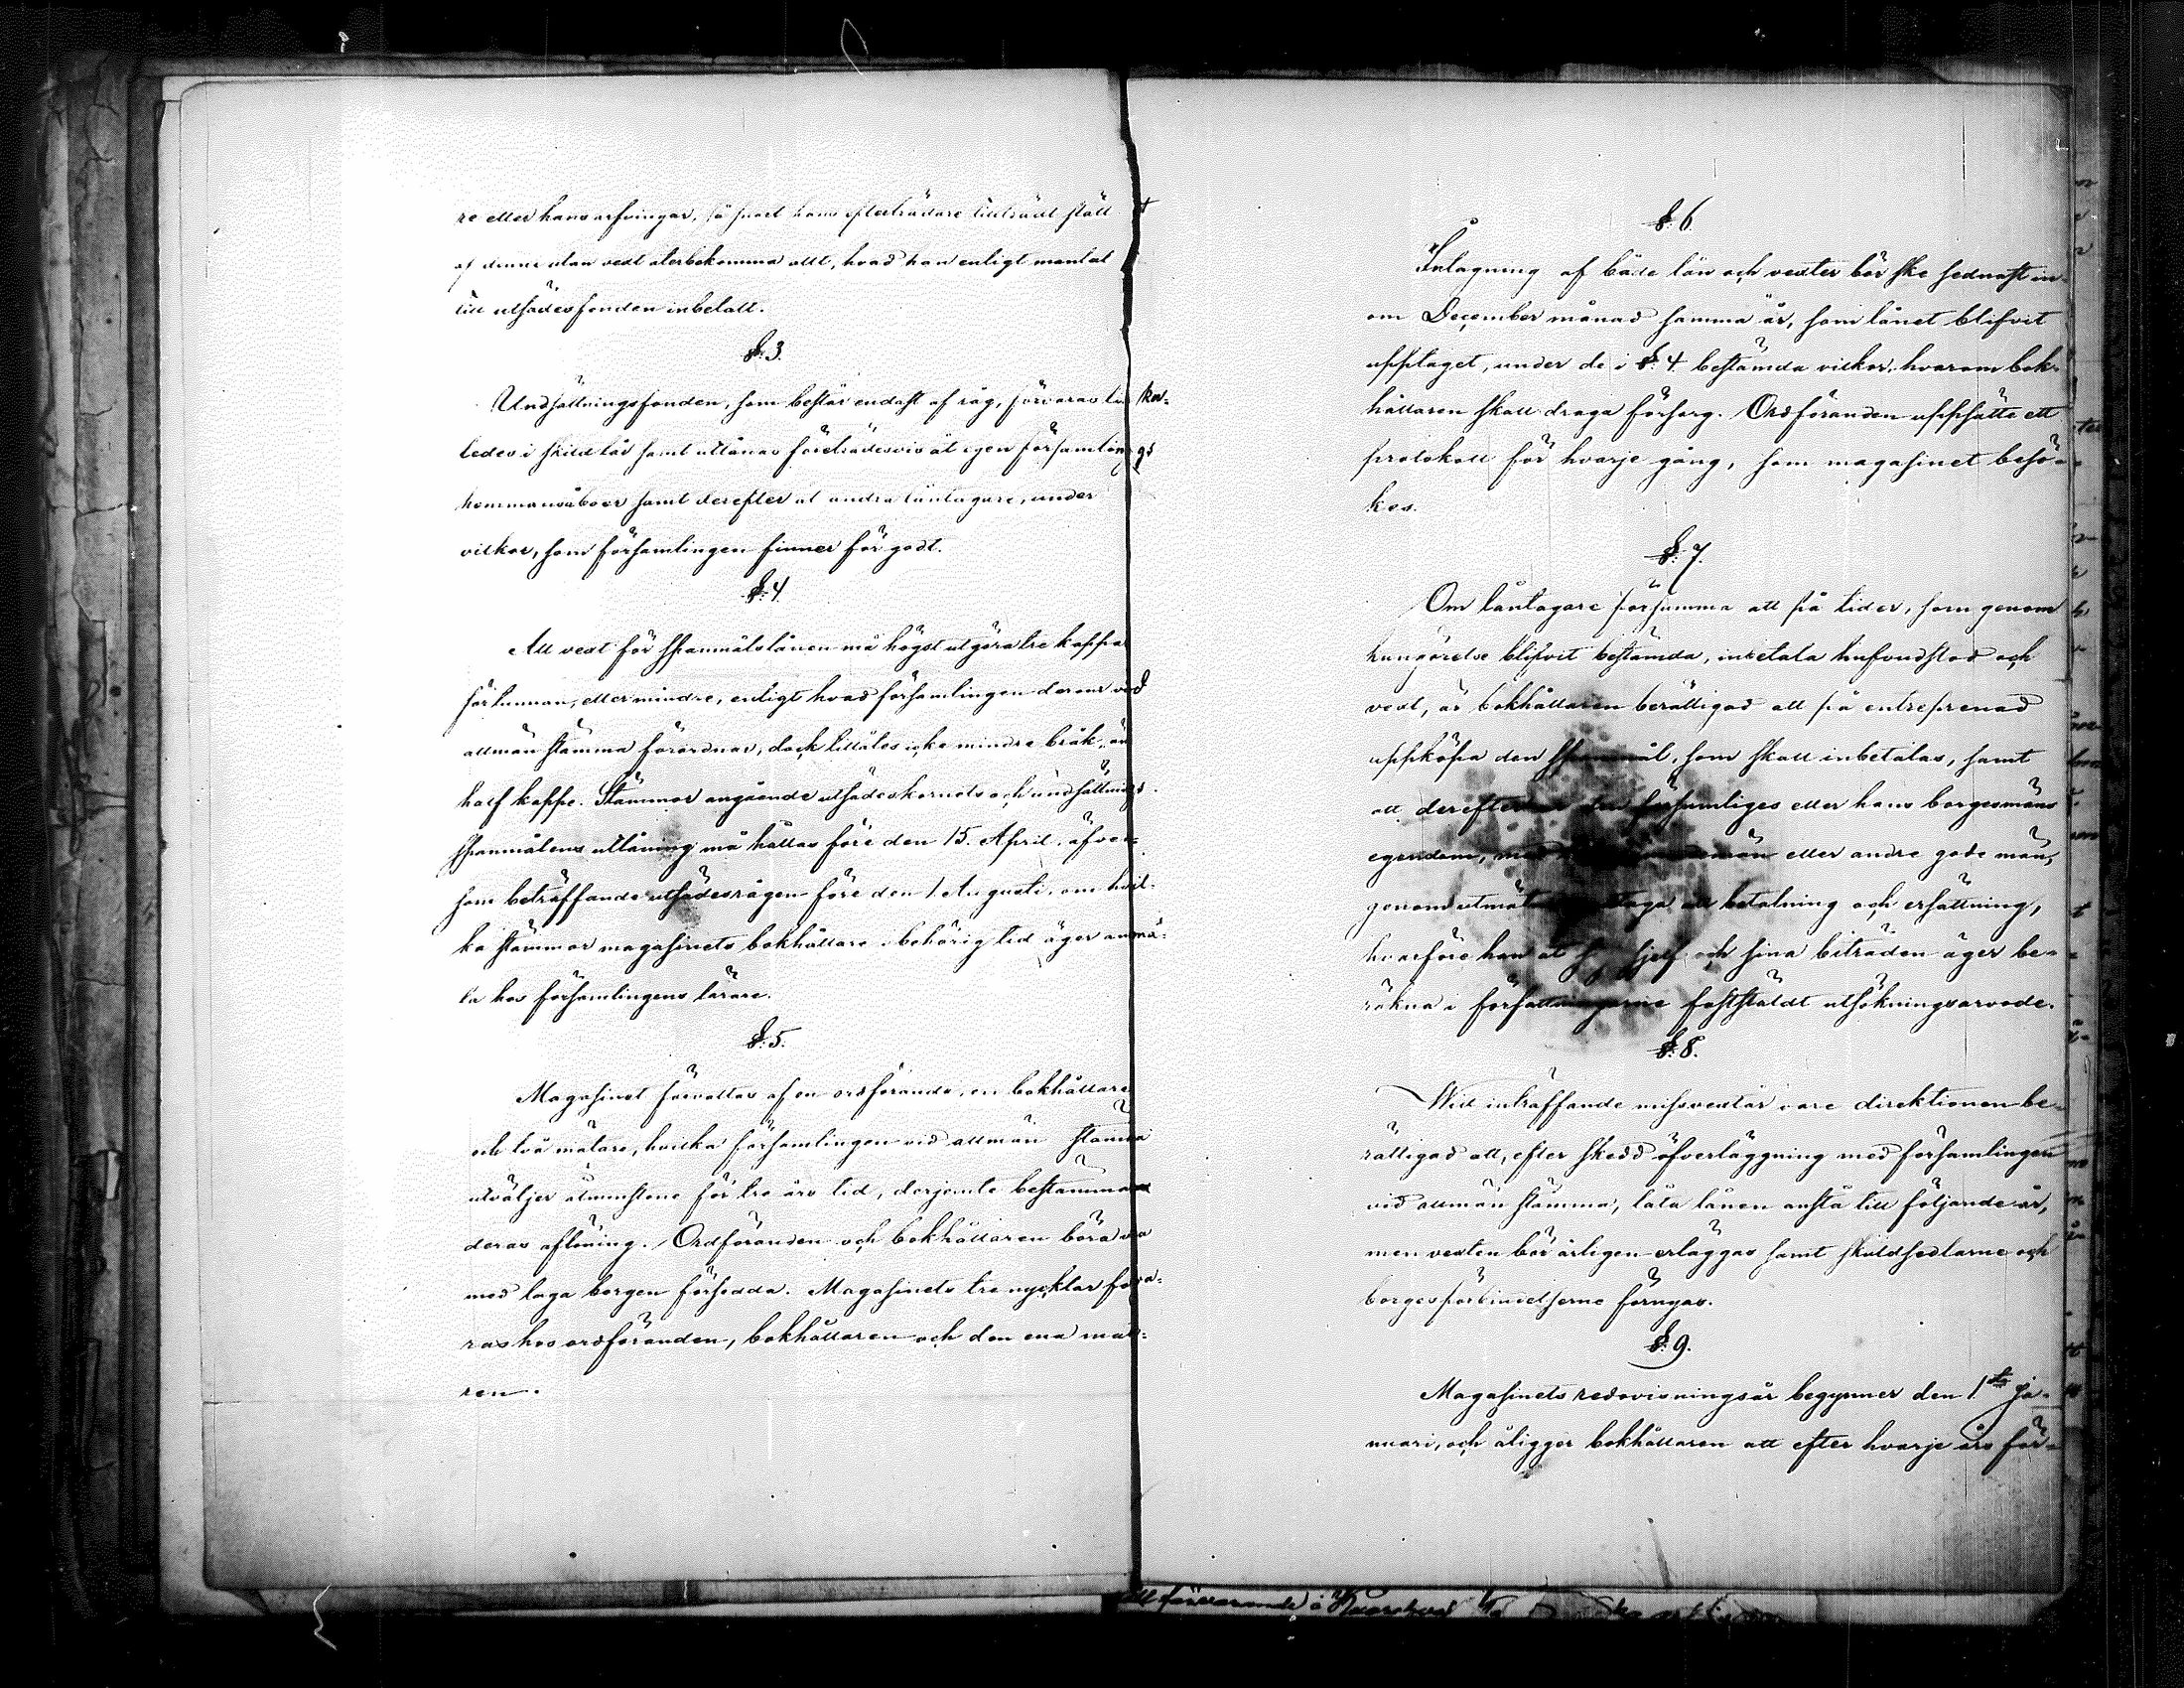 re eller hans arfvingar, så snart hans efterträdare tillträdt stält
af denne utan vext återbekomma allt, hvad han enligt mantal
till utsädesfonden inbetalt.
§. 3.
Undsättningsfonden, som består endast af råg, förvaras lika-
ledes i skild lår samt utlånas företrädesvis åt egen församlings
hemmansåboer samt derefter åt andra låntagare, under
vilkor, som församlingen finner för godt.
§. 4.
All vext för spannmålslånen må högst utgöra tre kappar
för tunnan, eller mindre, enligt hvad församlingen derom vid
allmän stämma förordnar, dock tillåtes icke mindre bråk, än
half kappe. Stämmor angående utsädeskornets och undsättnings-
spannmålens utlåning må hållas före den 15. April, äfven-
som beträffande utsädesrågen före den 1 Augusti, om hvil-
ka stämmor magasinets bokhållare i behörig tid äger anmä-
la hos församlingens lärare.
§. 5.
Magasinet förvaltas af en ordförande, en bokhållare
och två mätare, hvilka församlingen vid allmän stämma
utväljer åtminstone för tre års tid, derjemte bestämmande
deras aflöning. Ordföranden och bokhållaren böra vara
med laga borgen försedda. Magasinets tre nycklar förva-
ras hos ordföranden, bokhållaren och den ena mäta-
ren.
§. 6.
Inlagning af både lån och vexter bör ske sednast in-
om December månad samma år, som lånet blifvit
upptaget, under de i §. 4 bestämda vilkor, hvarom bok-
hållaren skall draga försorg. Ordföranden uppsätte ett
protokoll för hvarje gång, som magasinet besö-
kes.
§. 7.
Om låntagare försumma att på tider, som genom
kungörelse blifvit bestämda, inbetala hufvudstod och
vext, är bokhållaren berättigad att på entreprenad
uppköpa den spannmål, som skall inbetalas, samt
att derefter den försumliges eller hans borgesmäns
egendom, med eller andre gode män,
genom utmätning taga betalning och ersättning,
hvarföre han åt sig sjelf och sina biträden äger be-
räkna i författningarne faststäldt utsökningsarvode.
§. 8.
Wid inträffande missvextår vare direktionen be-
rättigad att, efter skedd öfverläggning med församlingen
vid allmän stämma, låta lånen anstå till följande år,
men vexten bör årligen erläggas samt skuldsedlarne och
borgesförbindelserne förnyas.
§. 9.
Magasinets redovisningsår begynner den 1sta Ja-
nuari, och åligger bokhållaren att efter hvarje års för-